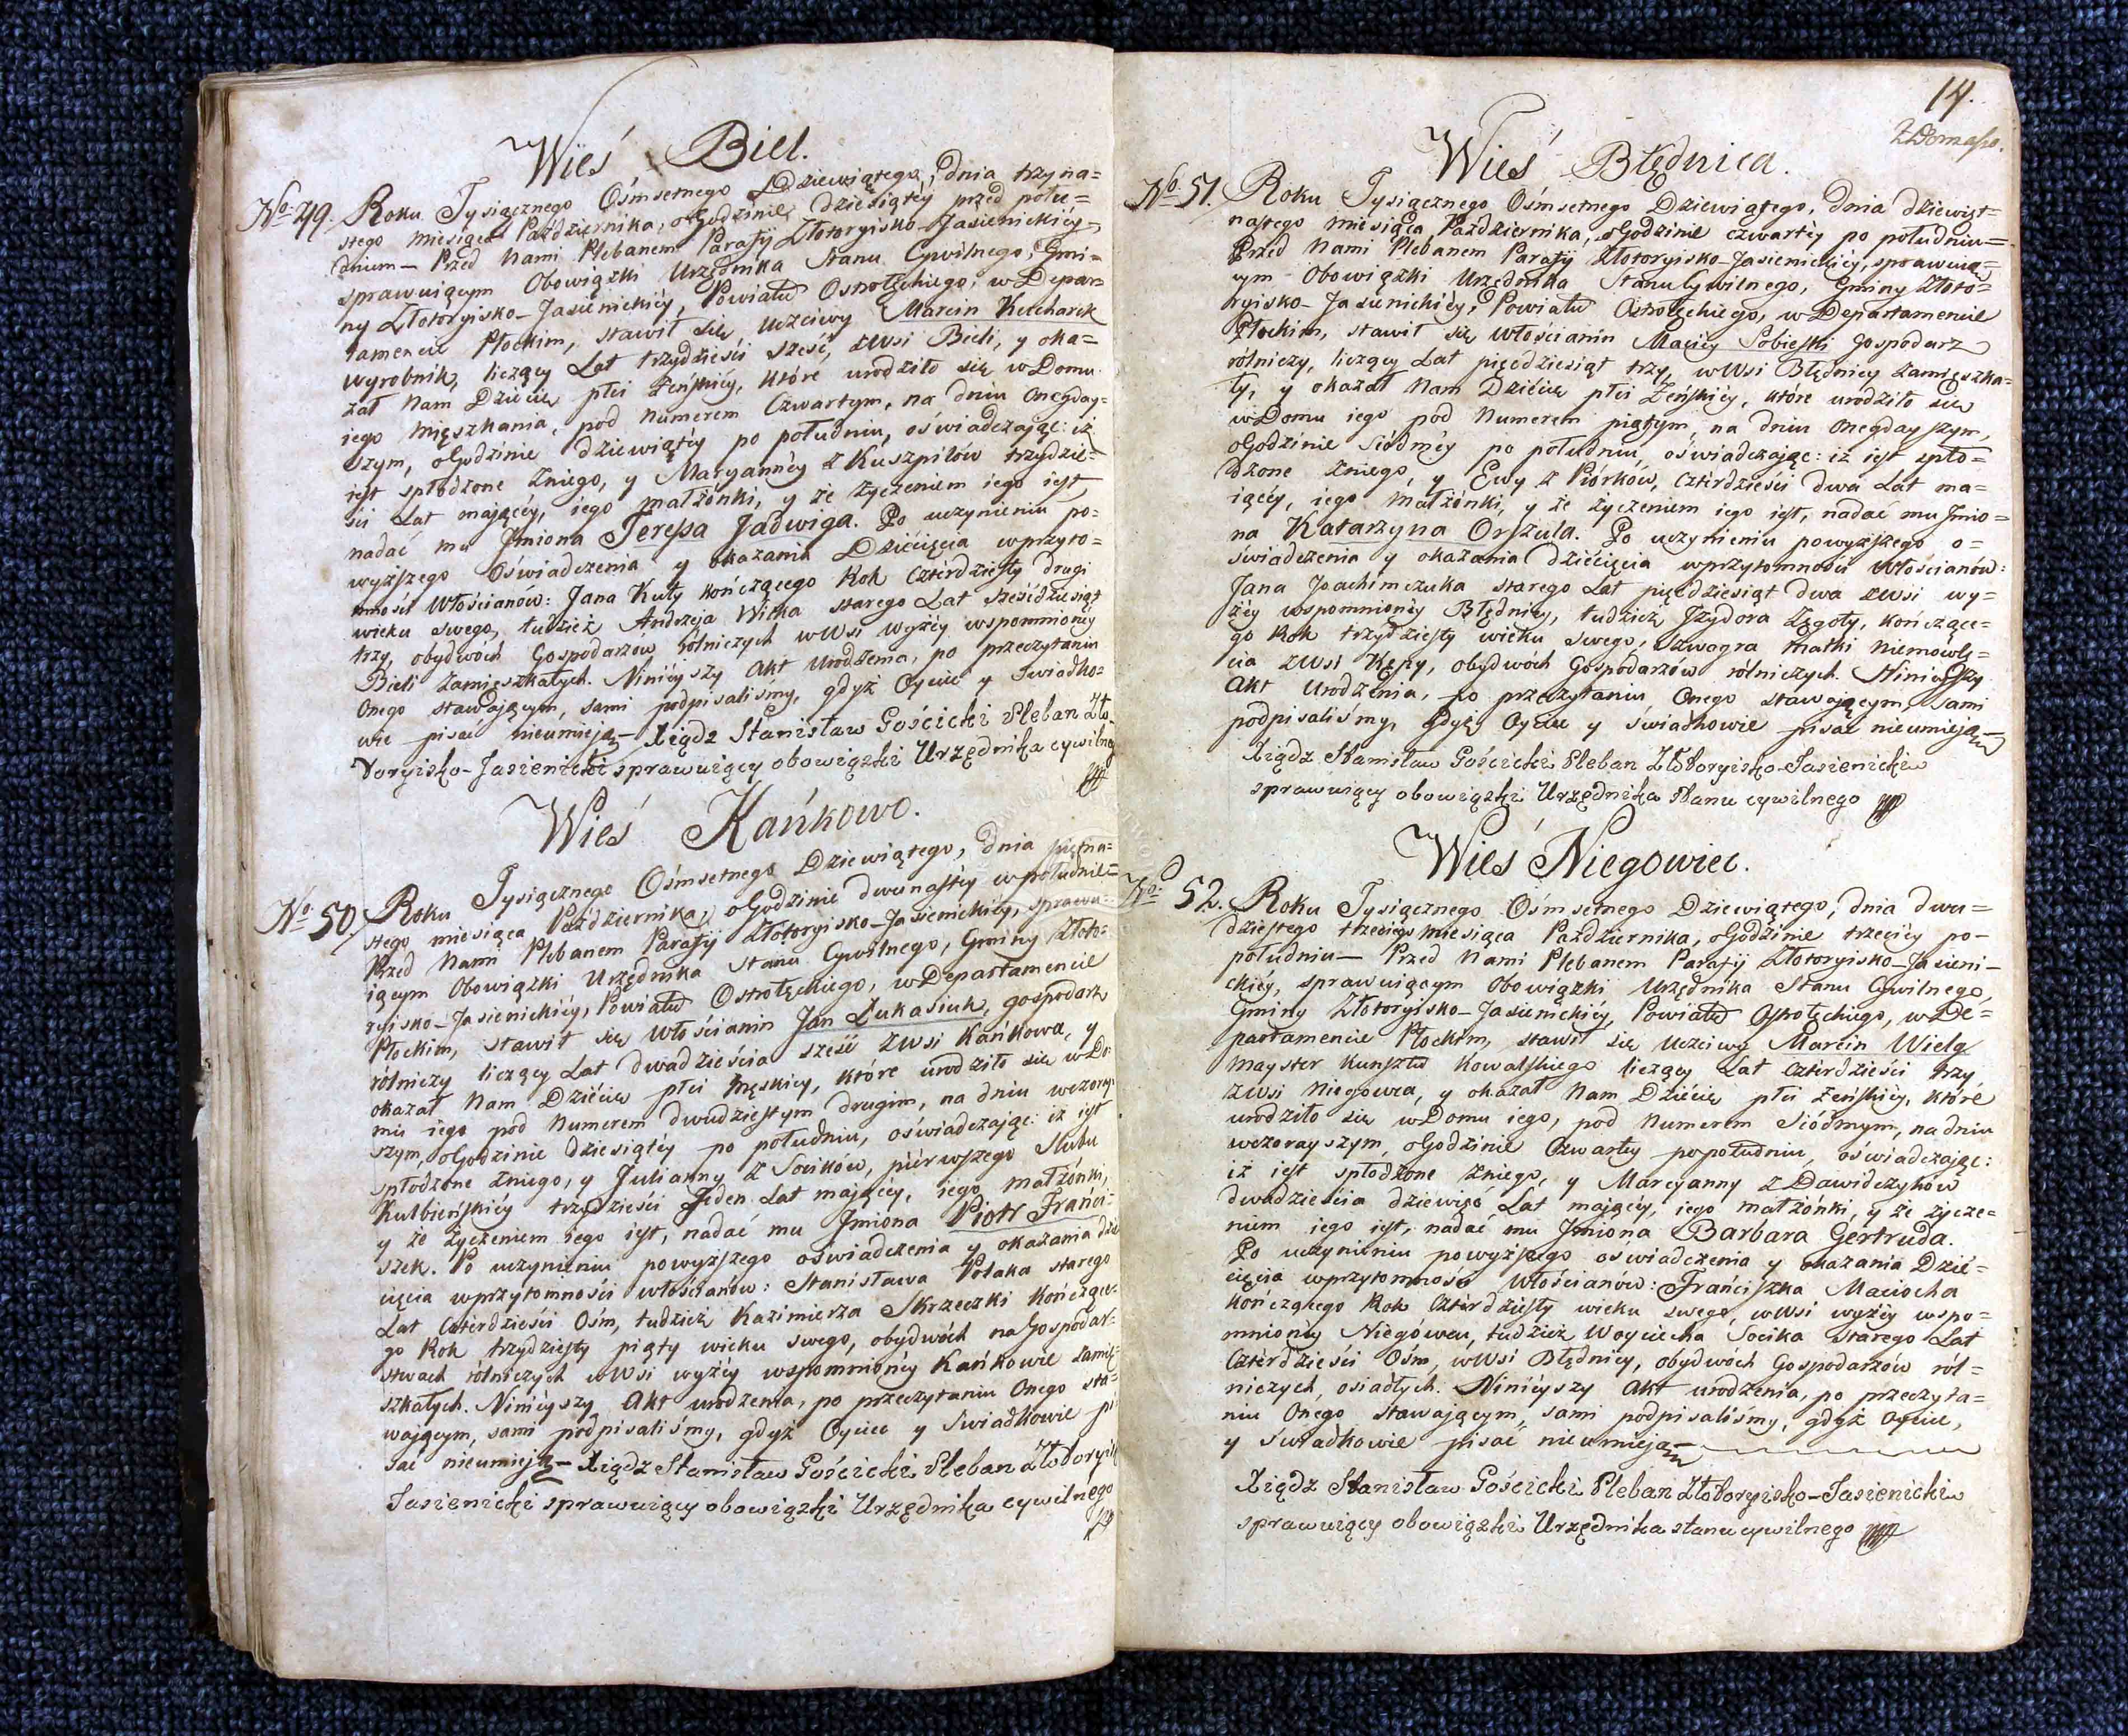 Wieś Biel.
No 49. Roku Tysiącznego Ośmsetnego Dziewiątego, dnia trzyna=
stego miesiąca Października, o Godzinie dziesiątéy przed połu=
dniem — Przed Nami Plebanem Parafij Złotoryisko-Jasienickiéy,
sprawuiącym Obowiązki Urzędnika Stanu Cywilnego, Gmi=
ny Złotoryisko-Jasienickiéy, Powiatu Ostrołęckiego, w Depar=
tamencie Płockim, stawił się uczciwy Marcin Kucharek
wyrobnik, liczący Lat trzydzieści sześć, z Wsi Bieli, y oka=
zał Nam Dziécię płci żeńskiéy, które urodziło się w Domu
iego mięszkania, pod Numerem Czwartym, na dniu onegday=
szym, o Godzinie dziewiątéy po południu, oświadczaiąc: iż
iest spłodzone z niego, y Maryannéy z Kuszpilów trzydzie=
ści Lat maiącéy, iego małżonki, y że życzeniem iego iest
nadać mu Jmiona Teressa Jadwiga. Po uczynieniu po=
wyższego Oświadczenia y okazania Dziécięcia w przyto=
mności Włościanów: Jana Kuty kończącego Rok Czterdziesty drugi
wieku swego, tudzież Andrzeja Witka starego Lat sześćdziesiąt
trzy, obydwóch Gospodarzów rólniczych w Wsi wyżéy wspomnionéy
Bieli zamięszkałych. Niniéyszy Akt Urodzenia, po przeczytaniu
Onego stawaiącym, sami podpisaliśmy, gdyż Oyciec y Swiadko=
wie pisać nieumieją — Xiądz Stanisław Gościcki Pleban Zło-
toryisko-Jasienicki sprawuiący obowiązki Urzędnika cywilneg
Wieś Kańkowo.
No 50. Roku Tysiącznego Ośmsetnego Dziewiątego, dnia piętna=
stego miesiąca Października, o Godzinie dwunastéy w południe=
Przed Nami Plebanem Parafij Złotoryisko-Jasienickiéy, sprawu=
iącym Obowiązki Urzędnika Stanu Cywilnego, Gminy Złoto=
ryisko-Jasienickiéy, Powiatu Ostrołęckiego, w Departamencie
Płockim, stawił się Włościanin Jan Łukasiuk, gospodarz
rólniczy liczący Lat dwadzieścia sześć z Wsi Kańkowa, y
okazał Nam Dziécię płci męskiey, które urodziło się w Do=
mu iego pod Numerem dwudziestym drugim, na dniu wczoray=
szym, o Godzinie dziesiątéy po południu, oświadczaiąc: iż iest
spłodzone z niego, y Julianny z Socików, piérwszego Slubu
Kulbieńskiéy trzydzieści Jeden Lat maiącéy, iego małżonki,
y że życzeniem iego iest, nadać mu Jmiona Piotr Franci=
szek. Po uczynieniu powyższego oświadczenia y okazania dzié
cięcia w przytomności włościanów: Stanisława Polaka starego
Lat Czterdzieści Ośm, tudzież Kazimierza Skrzeczki kończące=
go Rok trzydziesty piąty wieku swego, obydwóch na Gospodar=
stwach rólniczych w Wsi wyżéy wspomnionéy Kańkowie zamię=
szkałych. Niniéyszy Akt urodzenia, po przeczytaniu Onego sta=
waiącym, sami podpisaliśmy, gdyż Oyciec y Swiadkowie pi=
sać nieumieją — Xiądz Stanisław Gościcki Pleban Złotoryisk
Jasienicki sprawuiący obowiązki Urzędnika cywilnego
14.
Wieś Błędnica.
No 51. Roku Tysiącznego Ośmsetnego Dziewiątego, dnia dziewięt=
nastego miesiąca Października, o Godzinie czwartéy po południu=
Przed Nami Plebanem Parafij Złotoryisko-Jasienickiéy, sprawuią=
cym Obowiązki Urzędnika Stanu Cywilnego, Gminy Złoto=
ryisko-Jasienickiéy, Powiatu Ostrołęckiego, w Departamencie
Płockim, stawił się Włościanin Maciéy Sobieski Gospodarz
rólniczy, liczący Lat pięćdziesiąt trzy, w Wsi Błędnicy zamięszka=
ły, y okazał Nam Dziécię płci żeńskiéy, które urodziło się
w Domu iego pod Numerem piątym, na dniu onegdayszym,
o Godzinie Siódméy po południu, oświadczaiąc: iż iest spło=
dzone z niego, y Ewy z Piórków, Czterdzieści dwa Lat ma=
iącéy, iego małżonki, y że życzeniem iego iest, nadać mu Jmio=
na Katarzyna Orszula. Po uczynieniu powyższego o=
świadczenia y okazania dziécięcia w przytomności Włościanów:
Jana Joachimczuka starego Lat pięćdziesiąt dwa z Wsi wy=
żéy wspomnionéy Błędnicy, tudzież Jzydora Zęgoty, kończące=
go Rok trzydziesty wieku swego, szwagra matki niemowlę=
cia z Wsi Kępy, obydwóch Gospodarzów rólniczych. Niniéyszy
Akt Urodzenia, po przeczytaniu Onego stawaiącym, sami
podpisaliśmy, gdyż Oyciec y świadkowie pisać nieumieją
Xiądz Stanisław Gościcki Pleban Złotoryisko-Jasienicki
sprawuiący obowiązki Urzędnika stanu cywilnego
Wieś Niegowiec.
No 52. Roku Tysiącznego Ośmsetnego Dziewiątego, dnia dwu=
dziestego trzeciego miesiąca Października, o Godzinie trzeciéy po-
południu — Przed Nami Plebanem Parafij Złotoryisko-Jasieni-
ckiéy, sprawuiącym Obowiązki Urzędnika Stanu Cywilnego,
Gminy Złotoryisko-Jasienickiéy, Powiatu Ostrołęckiego, w De=
partamencie Płockim, stawił się uczciwy Marcin Wielg
Mayster Kunsztu Kowalskiego liczący Lat Czterdzieści trzy
z Wsi Niegowca, y okazał Nam Dziécię płci żeńskiéy, które
urodziło się w Domu iego, pod Numerem Siódmym, na dniu
wczorayszym, o Godzinie Czwartéy popołudniu, oświadczaiąc:
iż iest spłodzone z niego, y Maryanny z Dawidczyków
dwadzieścia dziewięć Lat maiącéy, iego małżonki, y że życze=
niem iego iest, nadać mu Jmiona Barbara Gertruda.
Po uczynieniu powyższego oświadczenia y okazania Dzié=
cięcia w przytomności Włościanów: Franciszka Maciocha
kończącego Rok Czterdziesty wieku swego, w Wsi wyżéy wspo=
mnionéy Niegówcu, tudzież Woyciecha Socika starego Lat
Czterdzieści Ośm, w Wsi Błędnicy, obydwóch Gospodarzów ról=
niczych, osiadłych. Niniéyszy Akt urodzenia, po przeczyta=
niu Onego stawaiącym, sami podpisaliśmy, gdyż Oyciec,
y Swiadkowie pisać nieumieją
Xiądz Stanisław Gościcki Pleban Złotoryisko-Jasienicki
sprawuiący obowiązki Urzędnika stanu cywilnego